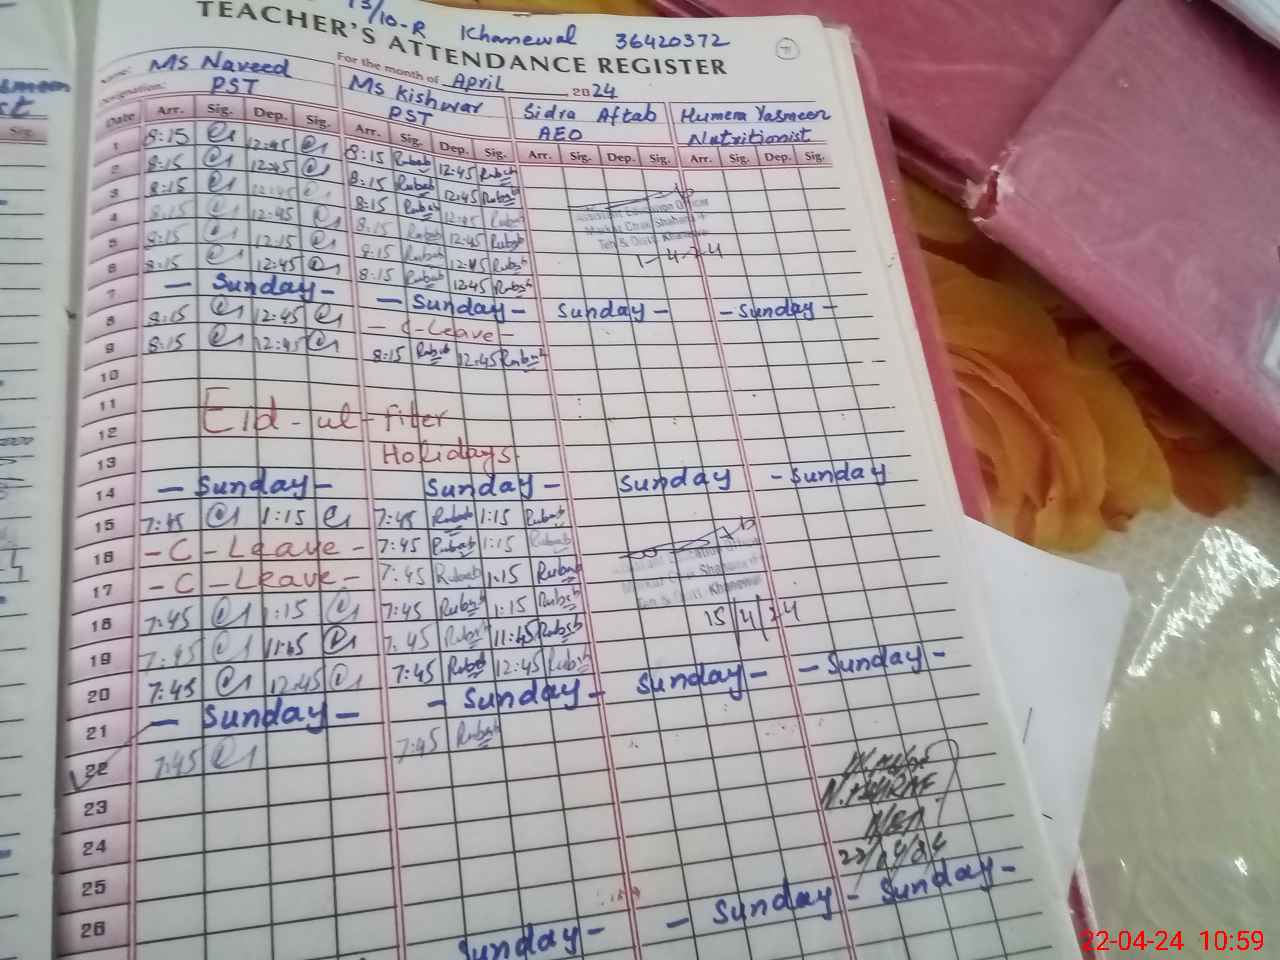 13/10-R Khanewal 36420372
TEACHER'S ATTENDANCE REGISTER
71
Name: MS Naveed
For the month of April 2024
Designation: PST
Ms Kishwar
PST
Sidra Aftab
AEO
Humera Yasmeen
Nutritionist
Date Arr. Sig. Dep. Sig. Arr. Sig. Dep. Sig. Arr. Sig. Dep. Sig. Arr. Sig. Dep. Sig.
1 8:15 12:45 8:15 Rubab 12:45 Rubab
2 8:15 12:45 8:15 Rubab 12:45 Rubab
3 8:15 12:45 8:15 Rubab 12:45 Rubab
4 8:15 12:45 8:15 Rubab 12:45 Rubab
5 8:15 12:15 8:15 Rubab 12:45 Rubab
6 8:15 12:45 8:15 Rubab 12:45 Rubab
Assistant Education Officer
Markaz Chak Shahana
Teh & Distt: Khanewal
1-4-24
7 - Sunday - - Sunday - Sunday - - Sunday -
8 8:15 12:45 - C-Leave -
9 8:15 12:45 8:15 Rubab 12:45 Rubab
10
11
12 Eid-ul-Fiter
13 Holidays
14 - Sunday - Sunday - Sunday - Sunday
15 7:45 1:15 7:45 Rubab 1:15 Rubab
16 - C - Leave - 7:45 Rubab 1:15 Rubab
17 - C - Leave - 7:45 Rubab 1:15 Rubab
Assistant Education Officer
Markaz Chak Shahana
Teh & Distt: Khanewal
15/4/24
18 7:45 1:15 7:45 Rubab 1:15 Rubab
19 7:45 11:45 7:45 Rubab 11:45 Rubab
20 7:45 12:45 7:45 Rubab 12:45 Rubab
21 - Sunday - - Sunday - Sunday - - Sunday -
22 7:45 7:45 Rubab
23
24
22/04/24
25
26
Sunday - - Sunday - Sunday -
22-04-24 10:59